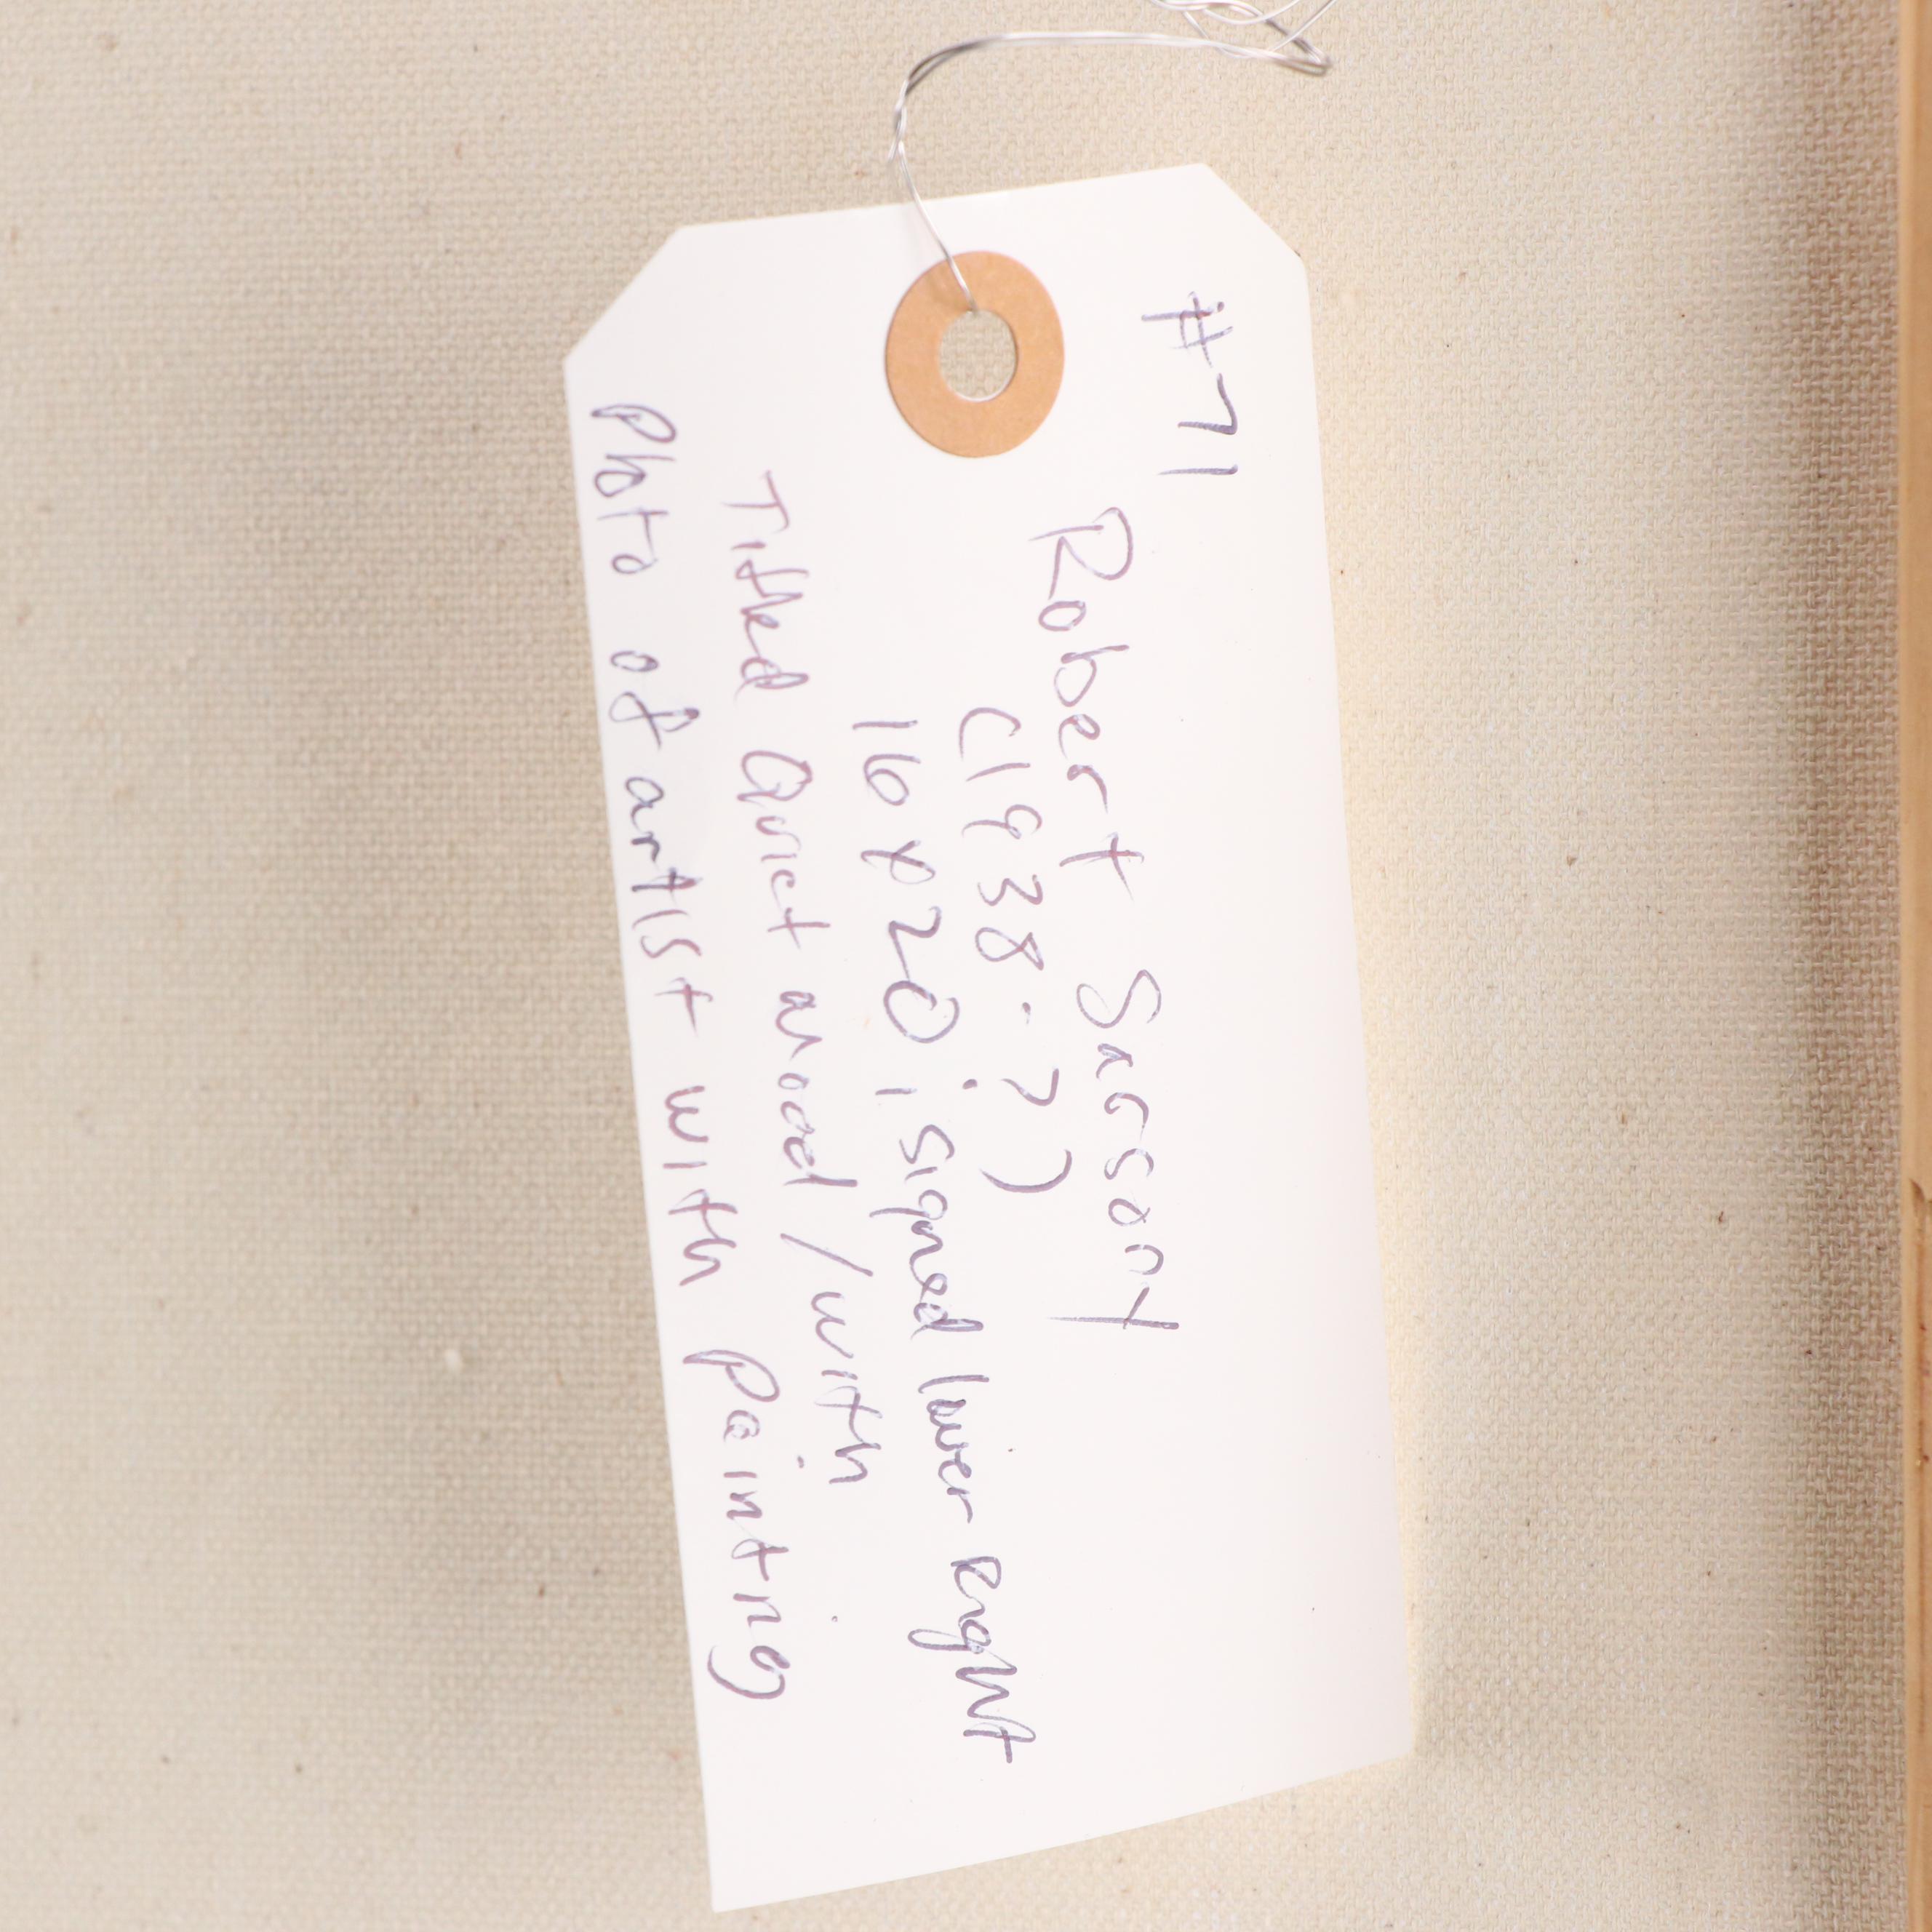 #71
Robert Sarsony
(1938-?)
16x20, signed lower Right
Titled Quiet mood/with
Photo of artist with painting